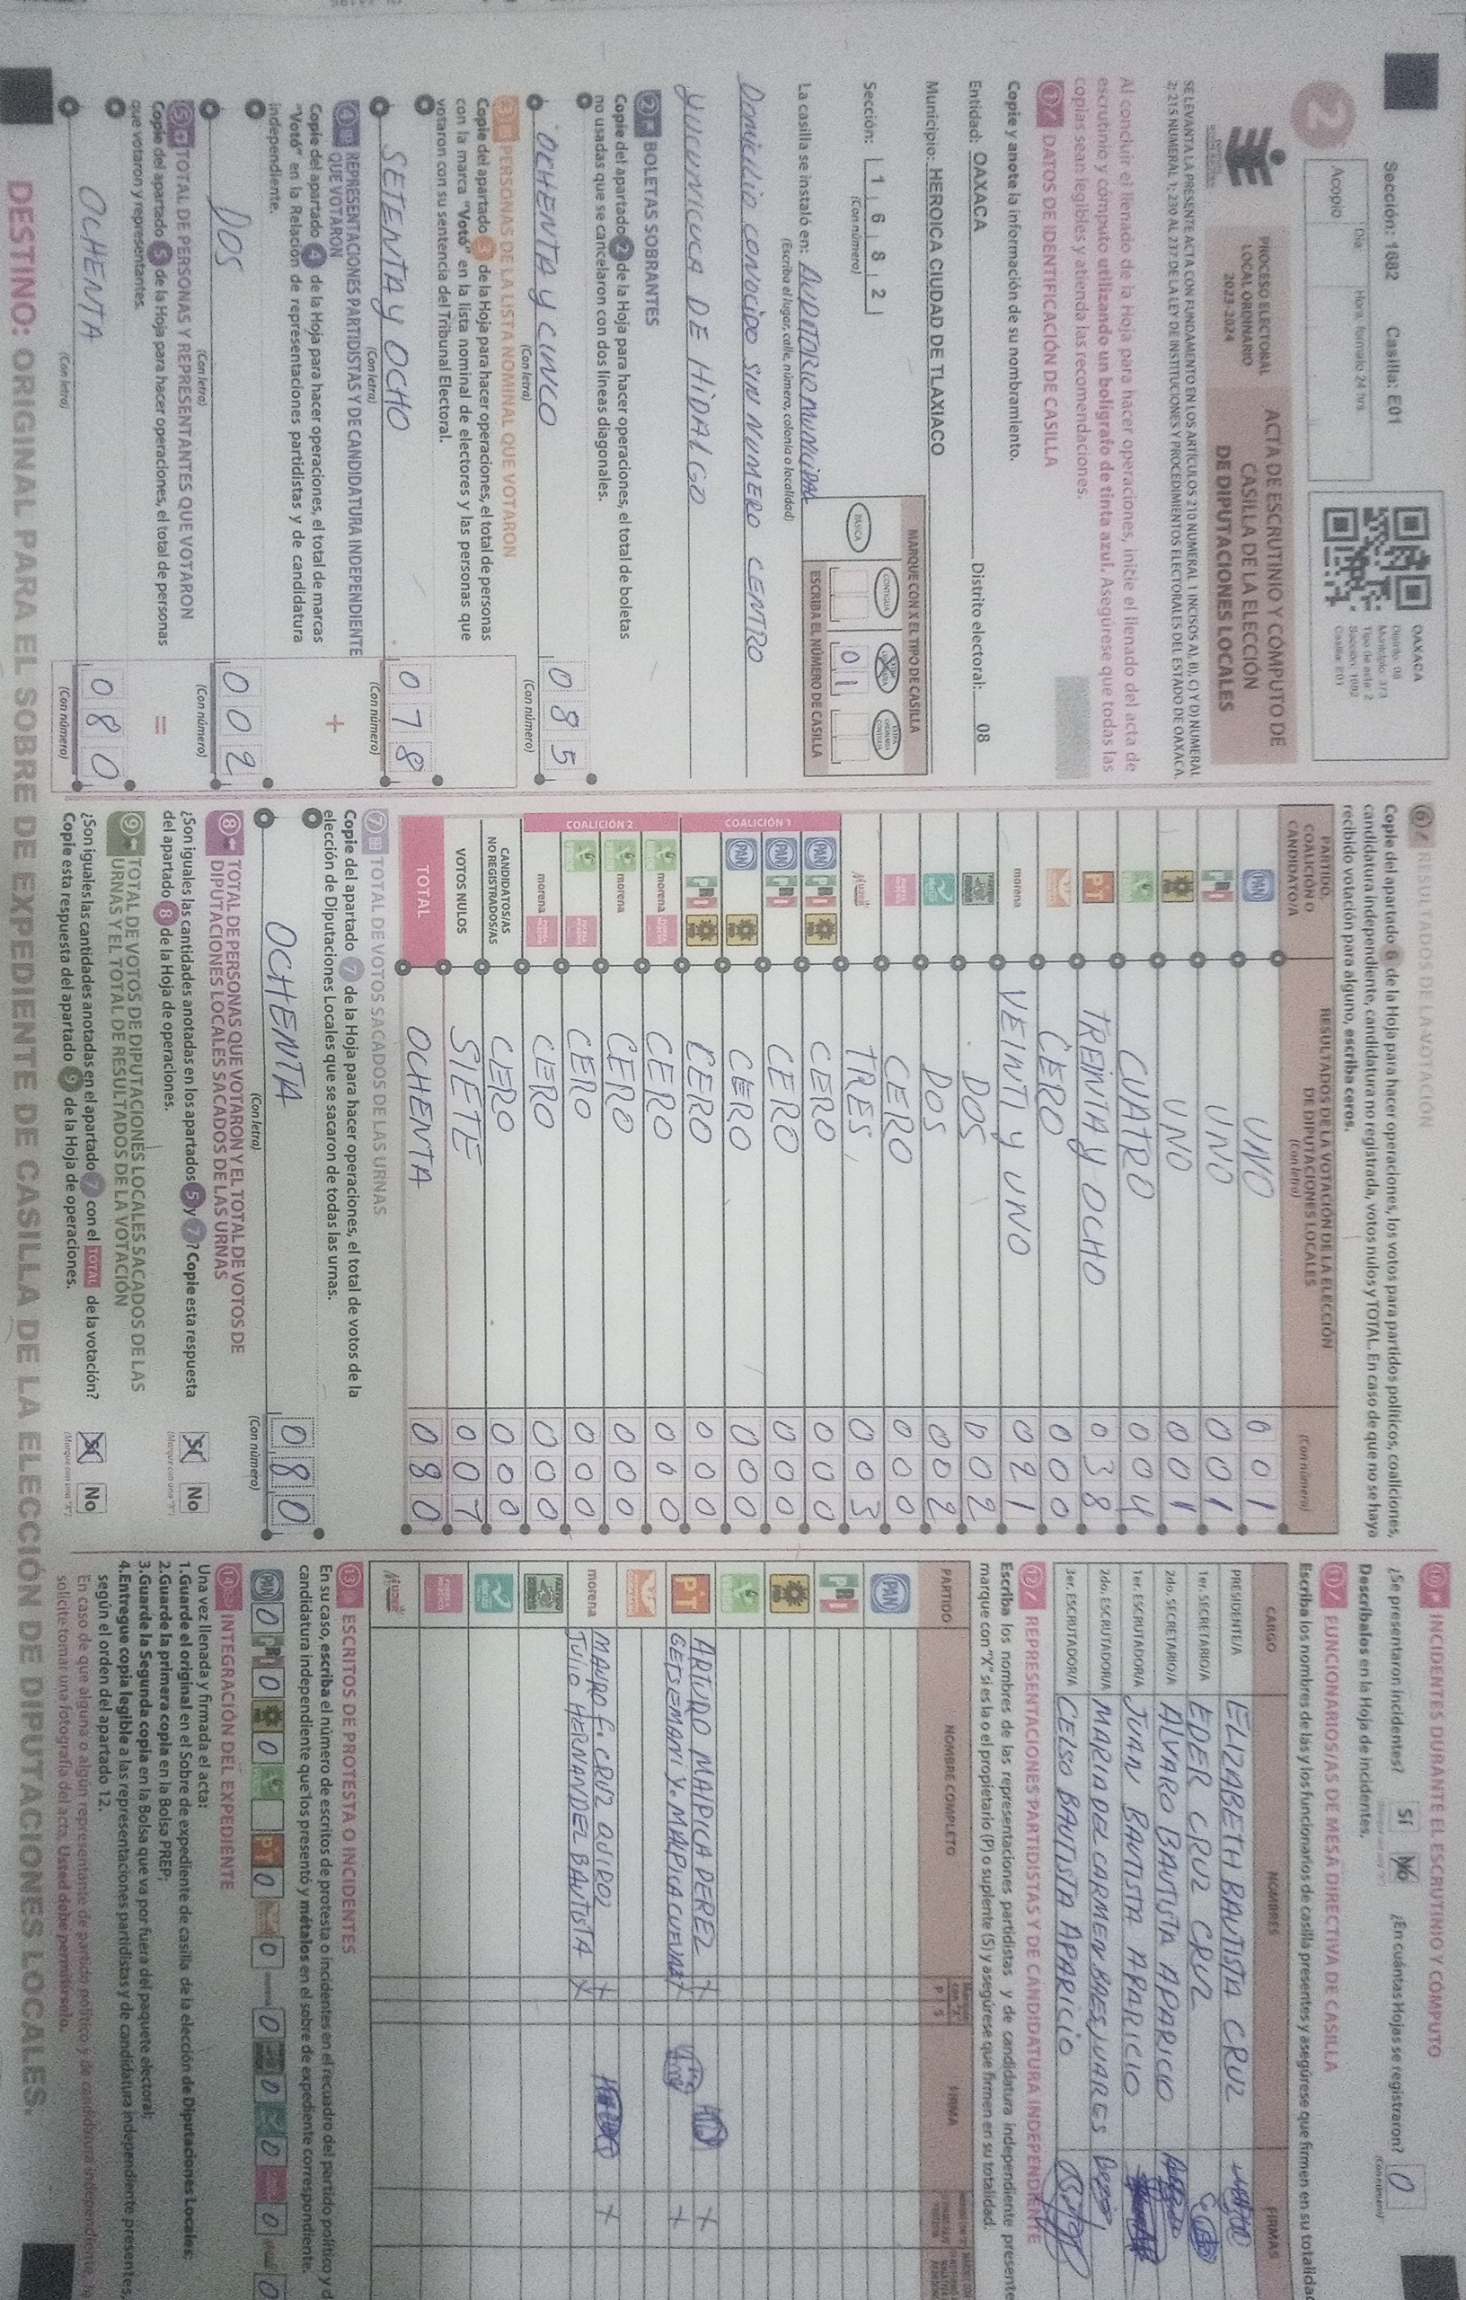 Sección: 1682 Casilla: E01
2
Acopio
Día
Hora, formato 24 hrs.
OAXACA
Distrito: 08
Municipio: 373
Tipo de acta: 2
Sección: 1682
Casilla: E01
PROCESO ELECTORAL
LOCAL ORDINARIO
2023-2024
ACTA DE ESCRUTINIO Y CÓMPUTO DE
CASILLA DE LA ELECCIÓN
DE DIPUTACIONES LOCALES
SE LEVANTA LA PRESENTE ACTA CON FUNDAMENTO EN LOS ARTÍCULOS 210 NUMERAL 1 INCISOS A), B), C) Y D) NUMERAL
2; 215 NUMERAL 1; 230 AL 237 DE LA LEY DE INSTITUCIONES Y PROCEDIMIENTOS ELECTORALES DEL ESTADO DE OAXACA.
Al concluir el llenado de la Hoja para hacer operaciones, inicie el llenado del acta de
escrutinio y cómputo utilizando un bolígrafo de tinta azul. Asegúrese que todas las
copias sean legibles y atienda las recomendaciones.
1 DATOS DE IDENTIFICACIÓN DE CASILLA
Copie y anote la información de su nombramiento.
Entidad: OAXACA Distrito electoral: 08
Municipio: HEROICA CIUDAD DE TLAXIACO
Sección: 1 6 8 2
(Con número)
MARQUE CON X EL TIPO DE CASILLA
BÁSICA CONTIGUA
0 1
ESCRIBA EL NÚMERO DE CASILLA
La casilla se instaló en: AUDITORIO MUNICIPAL
(Escriba el lugar, calle, número, colonia o localidad)
DOMICILIO CONOCIDO SIN NUMERO CENTRO
YUCUNICUCA DE HIDALGO
2 BOLETAS SOBRANTES
Copie del apartado 2 de la Hoja para hacer operaciones, el total de boletas
no usadas que se cancelaron con dos líneas diagonales.
OCHENTA Y CINCO 0 8 5
(Con letra) (Con número)
3 PERSONAS DE LA LISTA NOMINAL QUE VOTARON
Copie del apartado 3 de la Hoja para hacer operaciones, el total de personas
con la marca "Votó" en la lista nominal de electores y las personas que
votaron con su sentencia del Tribunal Electoral.
SETENTA Y OCHO 0 7 8
(Con letra) (Con número)
4 REPRESENTACIONES PARTIDISTAS Y DE CANDIDATURA INDEPENDIENTE
QUE VOTARON
Copie del apartado 4 de la Hoja para hacer operaciones, el total de marcas
"Votó" en la Relación de representaciones partidistas y de candidatura
independiente.
+
DOS 0 0 2
(Con letra) (Con número)
5 TOTAL DE PERSONAS Y REPRESENTANTES QUE VOTARON
Copie del apartado 5 de la Hoja para hacer operaciones, el total de personas
que votaron y representantes.
=
OCHENTA 0 8 0
(Con letra) (Con número)
6 RESULTADOS DE LA VOTACIÓN
Copie del apartado 6 de la Hoja para hacer operaciones, los votos para partidos políticos, coaliciones,
candidatura independiente, candidatura no registrada, votos nulos y TOTAL. En caso de que no se haya
recibido votación para alguno, escriba ceros.
PARTIDO,
COALICIÓN O
CANDIDATO/A
RESULTADOS DE LA VOTACIÓN DE LA ELECCIÓN
DE DIPUTACIONES LOCALES
(Con letra)
(Con número)
PAN UNO 0 0 1
PRI UNO 0 0 1
PRD UNO 0 0 1
CUATRO 0 0 4
PT TREINTA Y OCHO 0 3 8
CERO 0 0 0
morena VEINTI Y UNO 0 2 1
DOS 0 0 2
DOS 0 0 2
CERO 0 0 0
TRES 0 0 3
COALICIÓN 1
PAN PRI PRD CERO 0 0 0
PAN PRI CERO 0 0 0
PAN PRD CERO 0 0 0
PRI PRD CERO 0 0 0
COALICIÓN 2
morena CERO 0 0 0
morena CERO 0 0 0
CERO 0 0 0
morena CERO 0 0 0
CANDIDATOS/AS
NO REGISTRADOS/AS CERO 0 0 0
VOTOS NULOS SIETE 0 0 7
TOTAL OCHENTA 0 8 0
7 TOTAL DE VOTOS SACADOS DE LAS URNAS
Copie del apartado 7 de la Hoja para hacer operaciones, el total de votos de la
elección de Diputaciones Locales que se sacaron de todas las urnas.
OCHENTA 0 8 0
(Con letra) (Con número)
8 TOTAL DE PERSONAS QUE VOTARON Y EL TOTAL DE VOTOS DE
DIPUTACIONES LOCALES SACADOS DE LAS URNAS
¿Son iguales las cantidades anotadas en los apartados 5 y 7? Copie esta respuesta
del apartado 8 de la Hoja de operaciones.
Sí No
(Marque con una "X")
9 TOTAL DE VOTOS DE DIPUTACIONES LOCALES SACADOS DE LAS
URNAS Y EL TOTAL DE RESULTADOS DE LA VOTACIÓN
¿Son iguales las cantidades anotadas en el apartado 7 con el TOTAL de la votación?
Copie esta respuesta del apartado 9 de la Hoja de operaciones.
Sí No
(Marque con una "X")
10 INCIDENTES DURANTE EL ESCRUTINIO Y CÓMPUTO
¿Se presentaron incidentes? Sí No ¿En cuántas Hojas se registraron? 0
(Con número)
Descríbalos en la Hoja de incidentes.
11 FUNCIONARIOS/AS DE MESA DIRECTIVA DE CASILLA
Escriba los nombres de las y los funcionarios de casilla presentes y asegúrese que firmen en su totalidad
CARGO NOMBRES FIRMAS
PRESIDENTE/A ELIZABETH BAUTISTA CRUZ
1er. SECRETARIO/A EDER CRUZ CRUZ
2do. SECRETARIO/A ALVARO BAUTISTA APARICIO
1er. ESCRUTADOR/A JUAN BAUTISTA APARICIO
2do. ESCRUTADOR/A MARIA DEL CARMEN
3er. ESCRUTADOR/A CELSO BAUTISTA APARICIO
12 REPRESENTACIONES PARTIDISTAS Y DE CANDIDATURA INDEPENDIENTE
Escriba los nombres de las representaciones partidistas y de candidatura independiente presente
marque con "X" si es la o el propietario (P) o suplente (S) y asegúrese que firmen en su totalidad.
PARTIDO NOMBRE COMPLETO P S FIRMA
PAN
PRI
PRD
PT ARTURO MALPICA PEREZ X X
GETSEMANI Y. MALPICA CUEVAS X X
morena MAURO F. CRUZ QUIROZ X X
JULIO HERNANDEZ BAUTISTA X
13 ESCRITOS DE PROTESTA O INCIDENTES
En su caso, escriba el número de escritos de protesta o incidentes en el recuadro del partido político y d
candidatura independiente que los presentó y métalos en el sobre de expediente correspondiente.
PAN 0 PRI 0 PRD 0 PT 0 0 morena 0 0 0 0 0
14 INTEGRACIÓN DEL EXPEDIENTE
Una vez llenada y firmada el acta:
1.Guarde el original en el Sobre de expediente de casilla de la elección de Diputaciones Locales;
2.Guarde la primera copia en la Bolsa PREP;
3.Guarde la Segunda copia en la Bolsa que va por fuera del paquete electoral;
4.Entregue copia legible a las representaciones partidistas y de candidatura independiente presentes,
según el orden del apartado 12.
En caso de que alguna o algún representante de partido político y de candidatura independiente, le
solicite tomar una fotografía del acta, Usted debe permitírselo.
DESTINO: ORIGINAL PARA EL SOBRE DE EXPEDIENTE DE CASILLA DE LA ELECCIÓN DE DIPUTACIONES LOCALES.